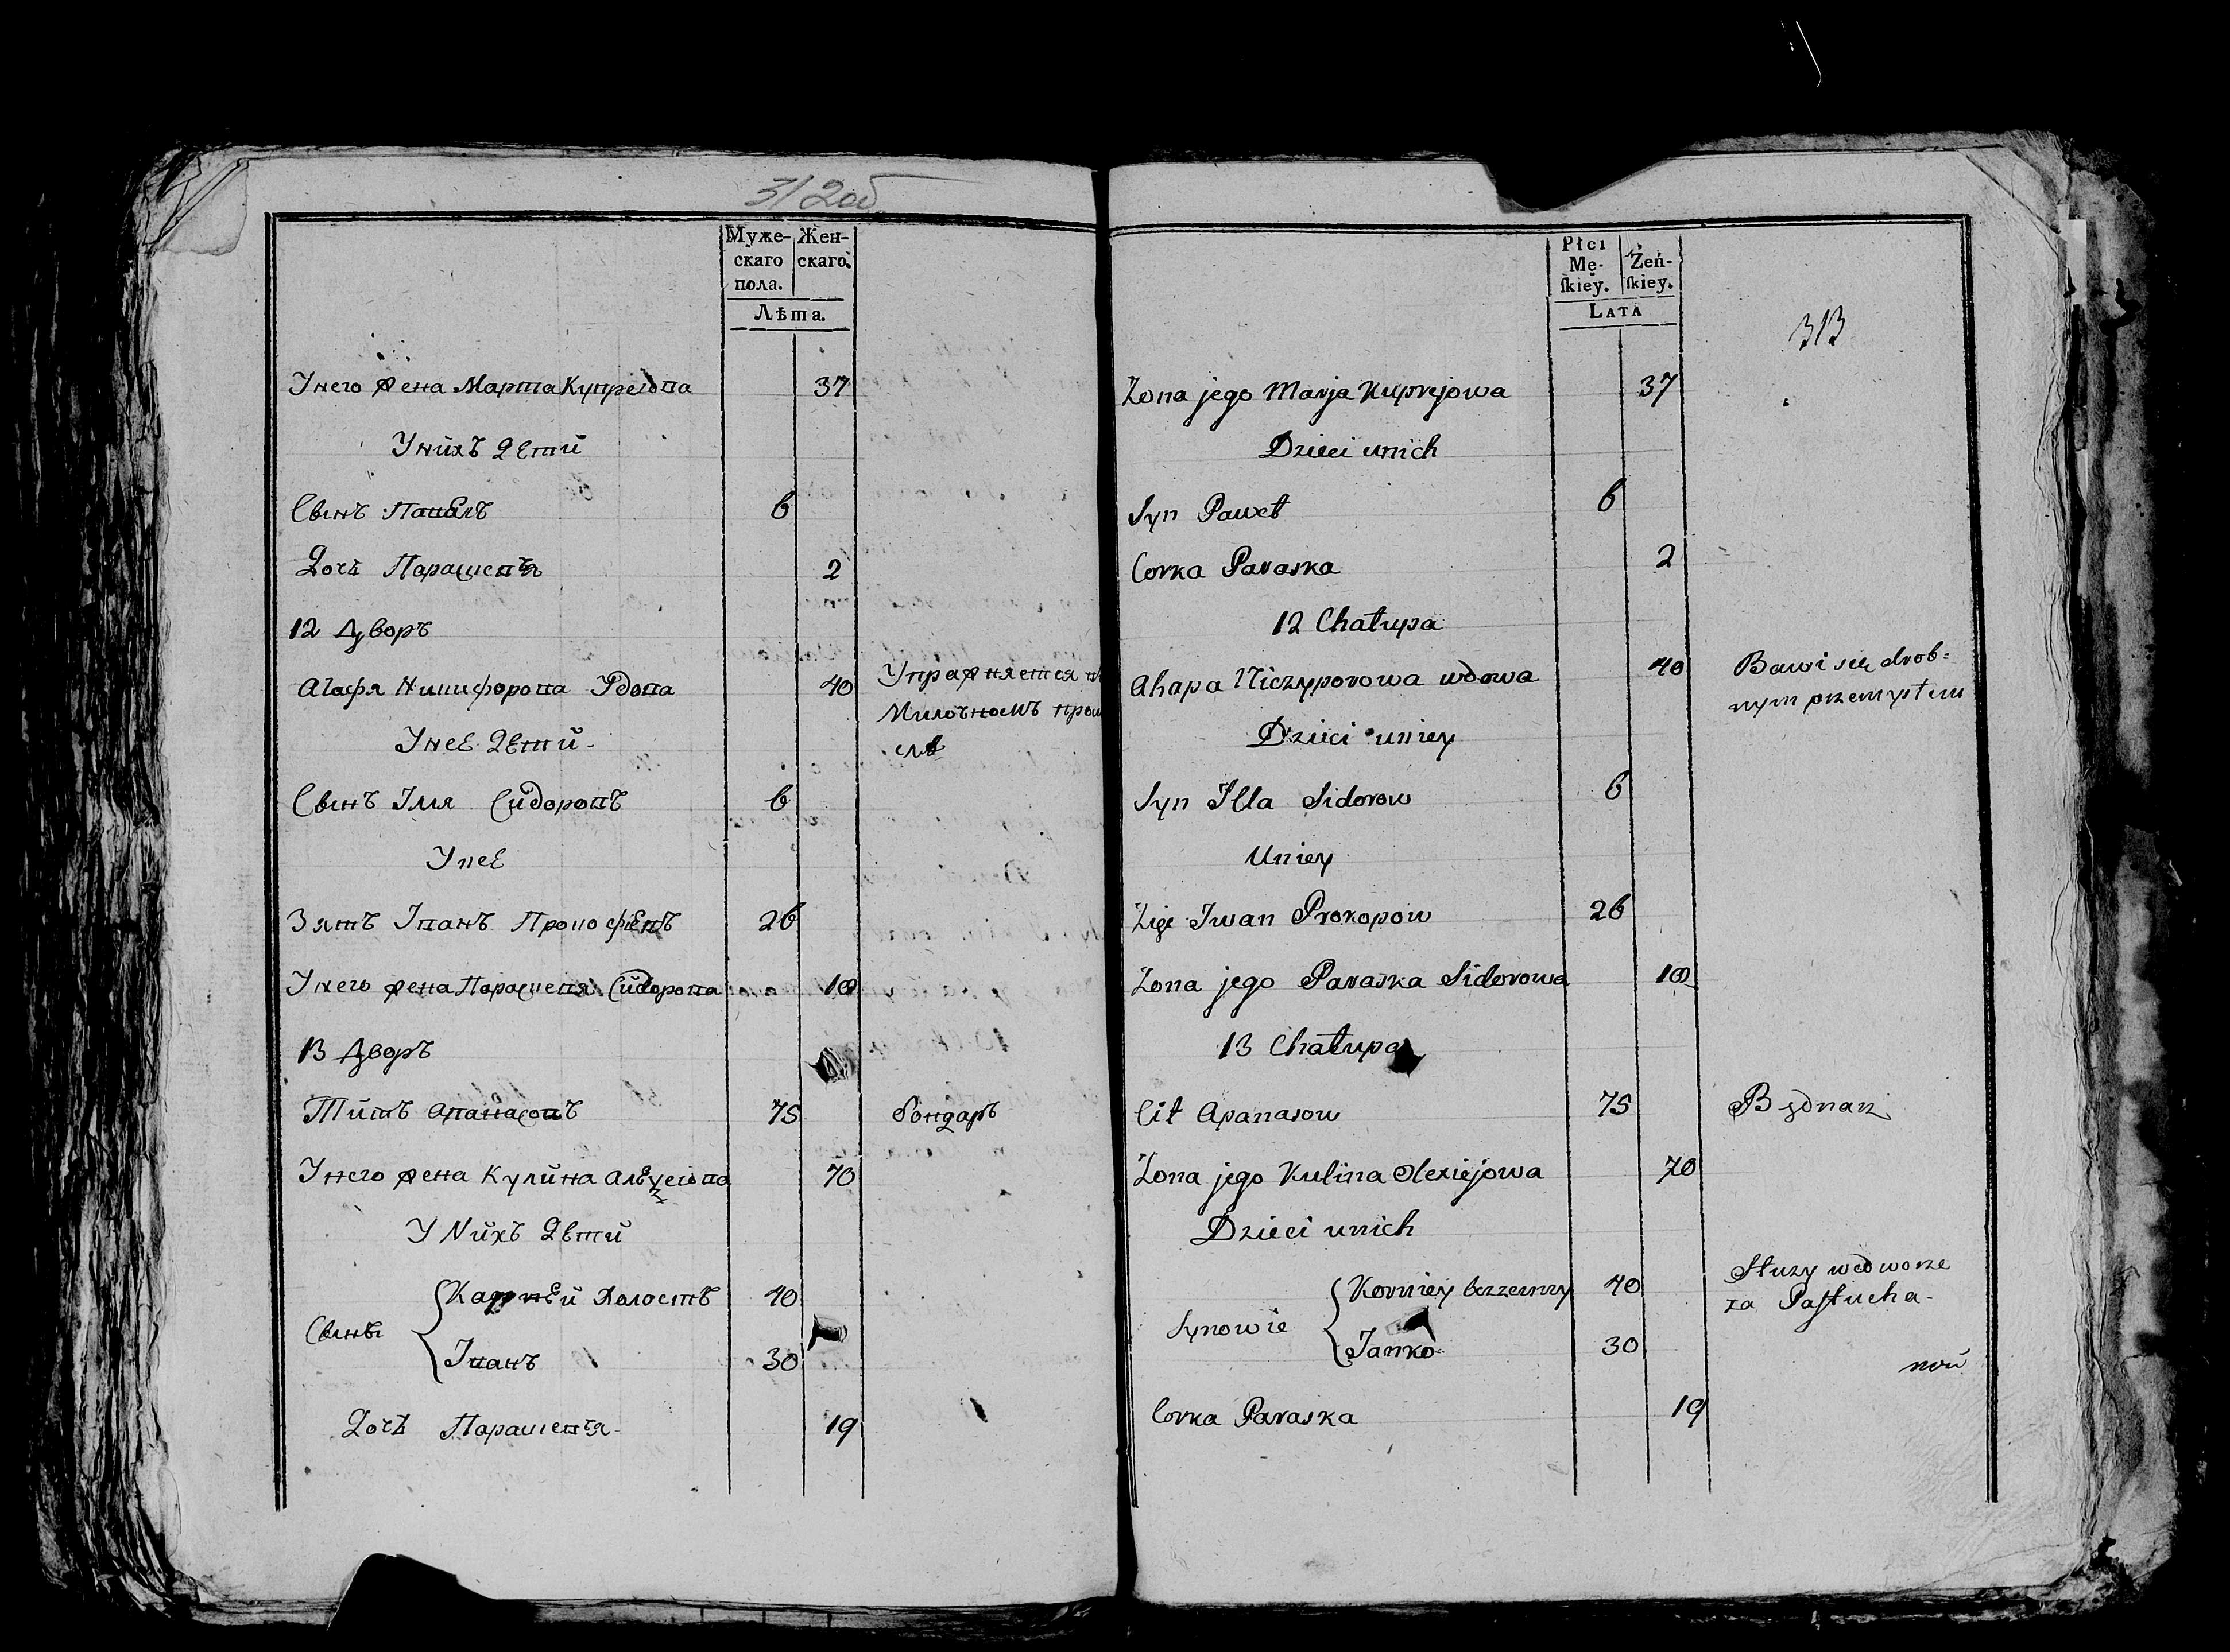 312об
Муже-
скаго
пола.
Жен-
скаго.
Лѣта.
У него жена Марта Купреіова
37
У нихъ дети
Сынъ Павелъ
6
Дочь Парасцевья
2
12 Дворъ
Агафя Никифорова Удова
40
Упражняется
Милочномъ пром
слѣ
У неё дети
Сынъ Іля Сидоровъ
6
У неё
Зять Іванъ
26
У него жена Парасцевя Сидорова
18
13 Дворъ
Титъ Апанасовъ
75
бондаръ
У него жена Кулина
70
У Нихъ дети
Сыны
Карней Холостъ
40
Іванъ
30
Дочь Парасцевья
19
Płci
Mę-
ſkiey.
Żeń-
ſkiey.
LATA
313
Zona jego Marja Kuprejowa
37
Dzieci unich
Syn Paweł
6
Corka Paraska
2
12 Chałupa
Ahapa Niczyporowa wdowa
40
Bawi się drob=
nym przemysłem
Dzieci uniey
Syn Illa Sidorow
6
Uniey
Zięć Iwan Prokopow
26
Zona jego Paraska Sidorowa
18
13 Chałupa
Cit Apanasow
75
Będnarz
Zona jego Kulina Olexiejowa
70
Dzieci unich
Synowie
Korniey bezzenny
40
Służy wedworze
za Paſtucha
Janko
30
Corka Paraska
19